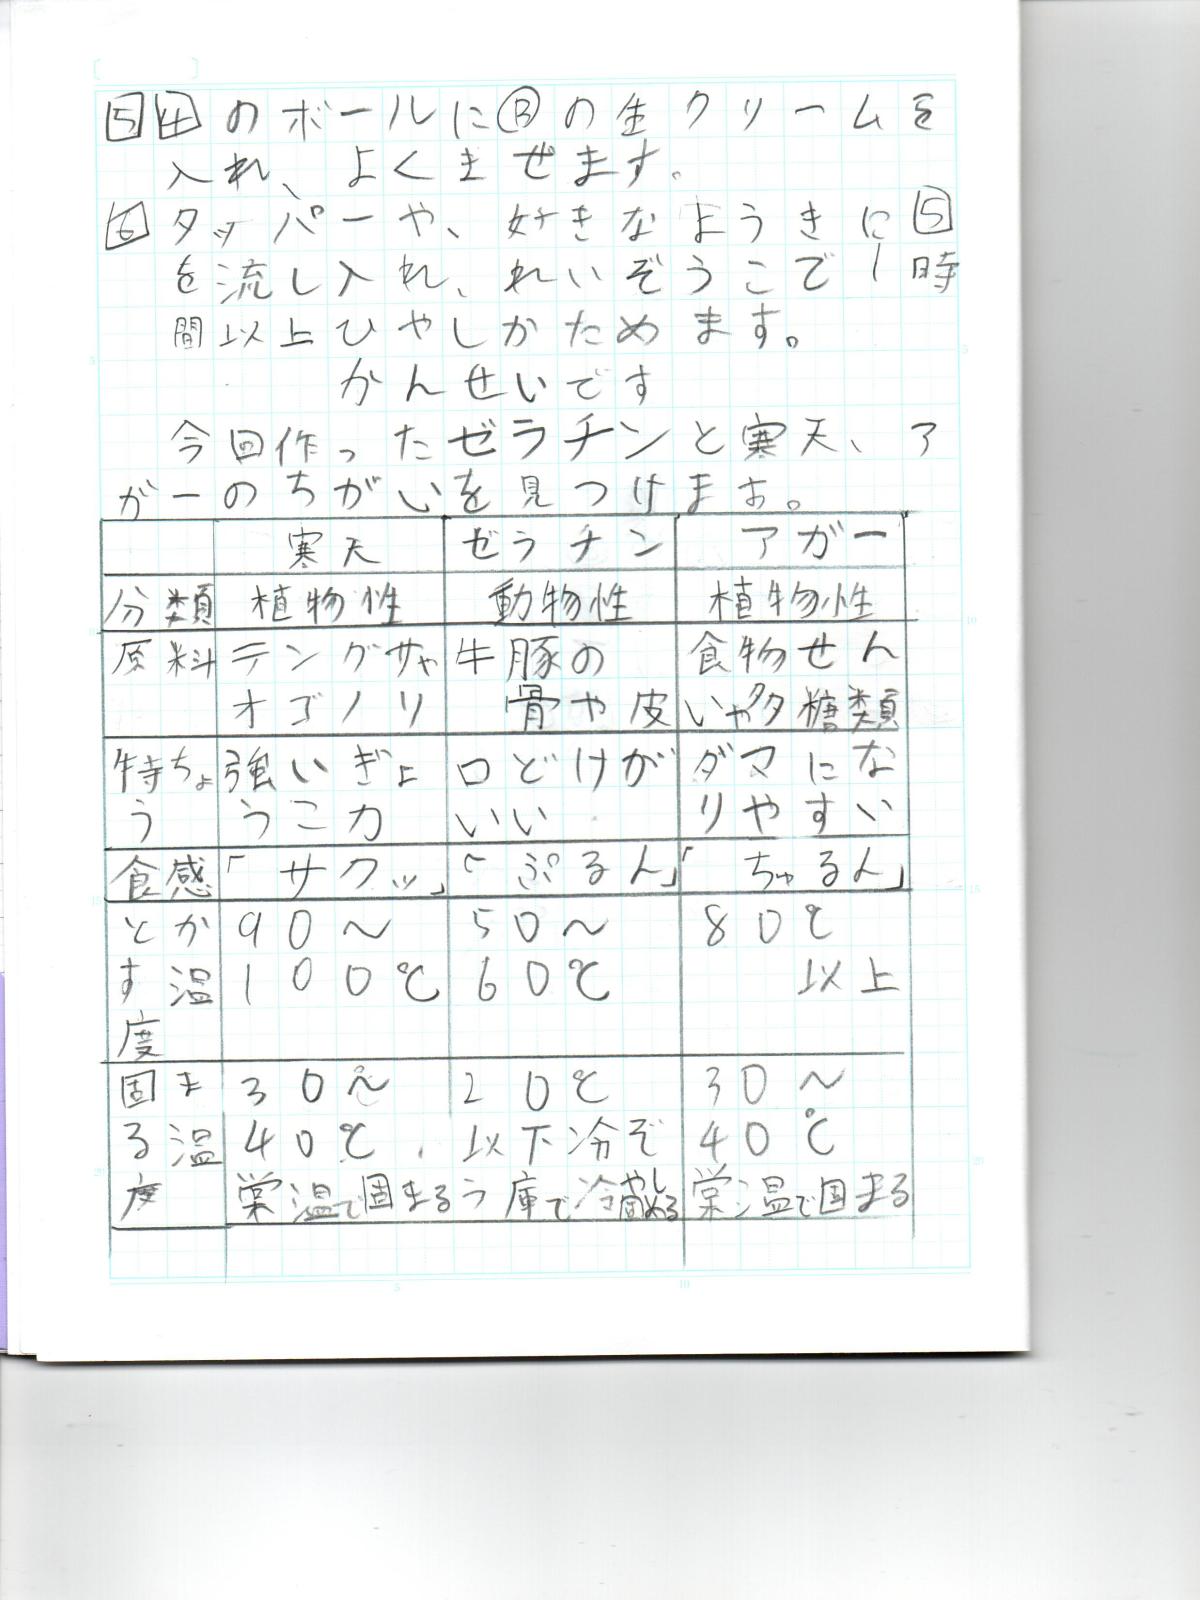 5 4 のボールにⒷの生クリームを
入れ、よくまぜます。
6 タッパーや、好きなようきに 5
を流し入れ、れいぞうこで1時
間以上ひやしかためます。
かんせいです
今回作ったゼラチンと寒天、ア
ガーのちがいを見つけます。
寒天 ゼラチン アガー
分類 植物性 動物性 植物性
原料 テングサや 牛豚の 食物せん
オゴノリ 骨や皮 いや多糖類
特ちょ 強いぎょ 口どけが ダマにな
う うこ力 いい りやすい
食感 「サクッ」 「ぷるん」 「ちゅるん」
とか 90〜 50〜 80℃
す温 100℃ 60℃ 以上
度
固ま 30〜 20℃ 30〜
る温 40℃ 以下冷ぞ 40℃
度 常温で固まる う庫で冷やし固める 常温で固まる